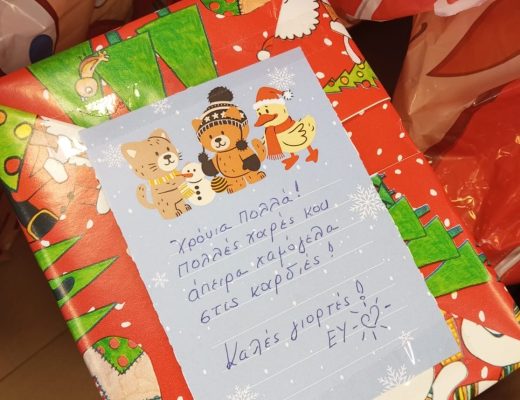 Χρόνια Πολλά!
Πολλές χαρές και
άπειρα χαμόγελα
στις καρδιές!
Καλές γιορτές!
ΕΥ